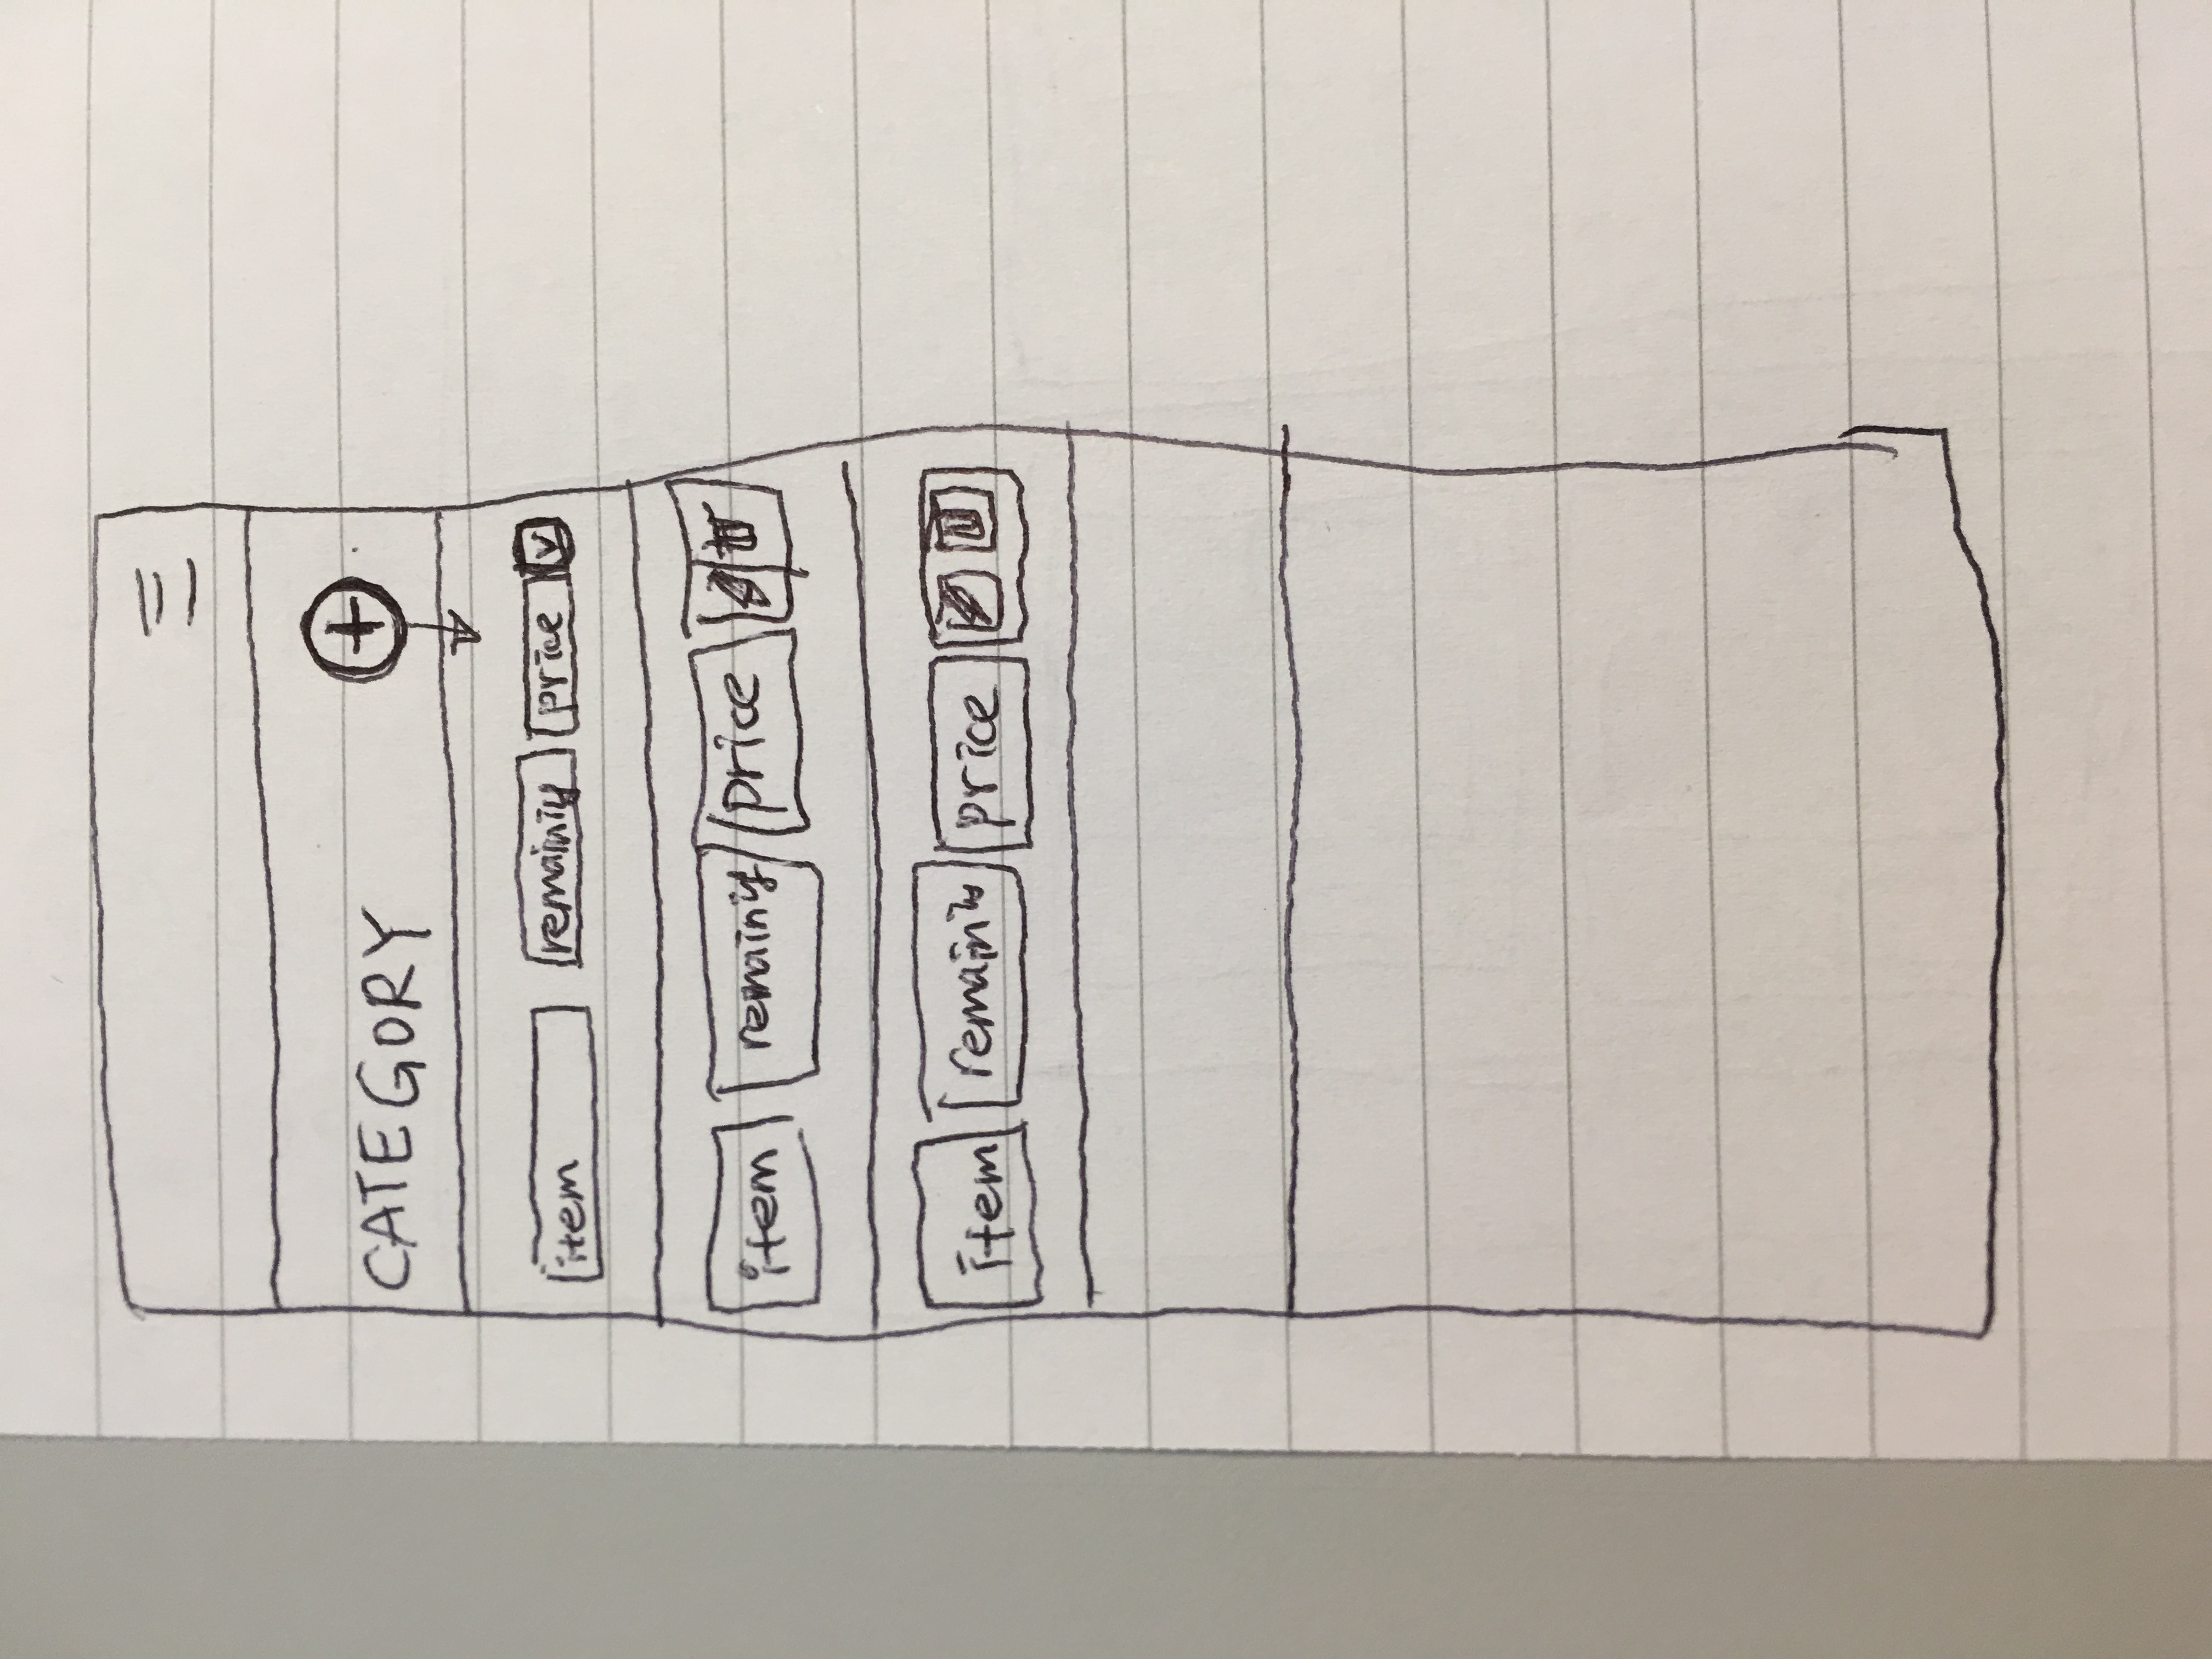 CATEGORY
item remaining price v
item remaining price
item remaining price